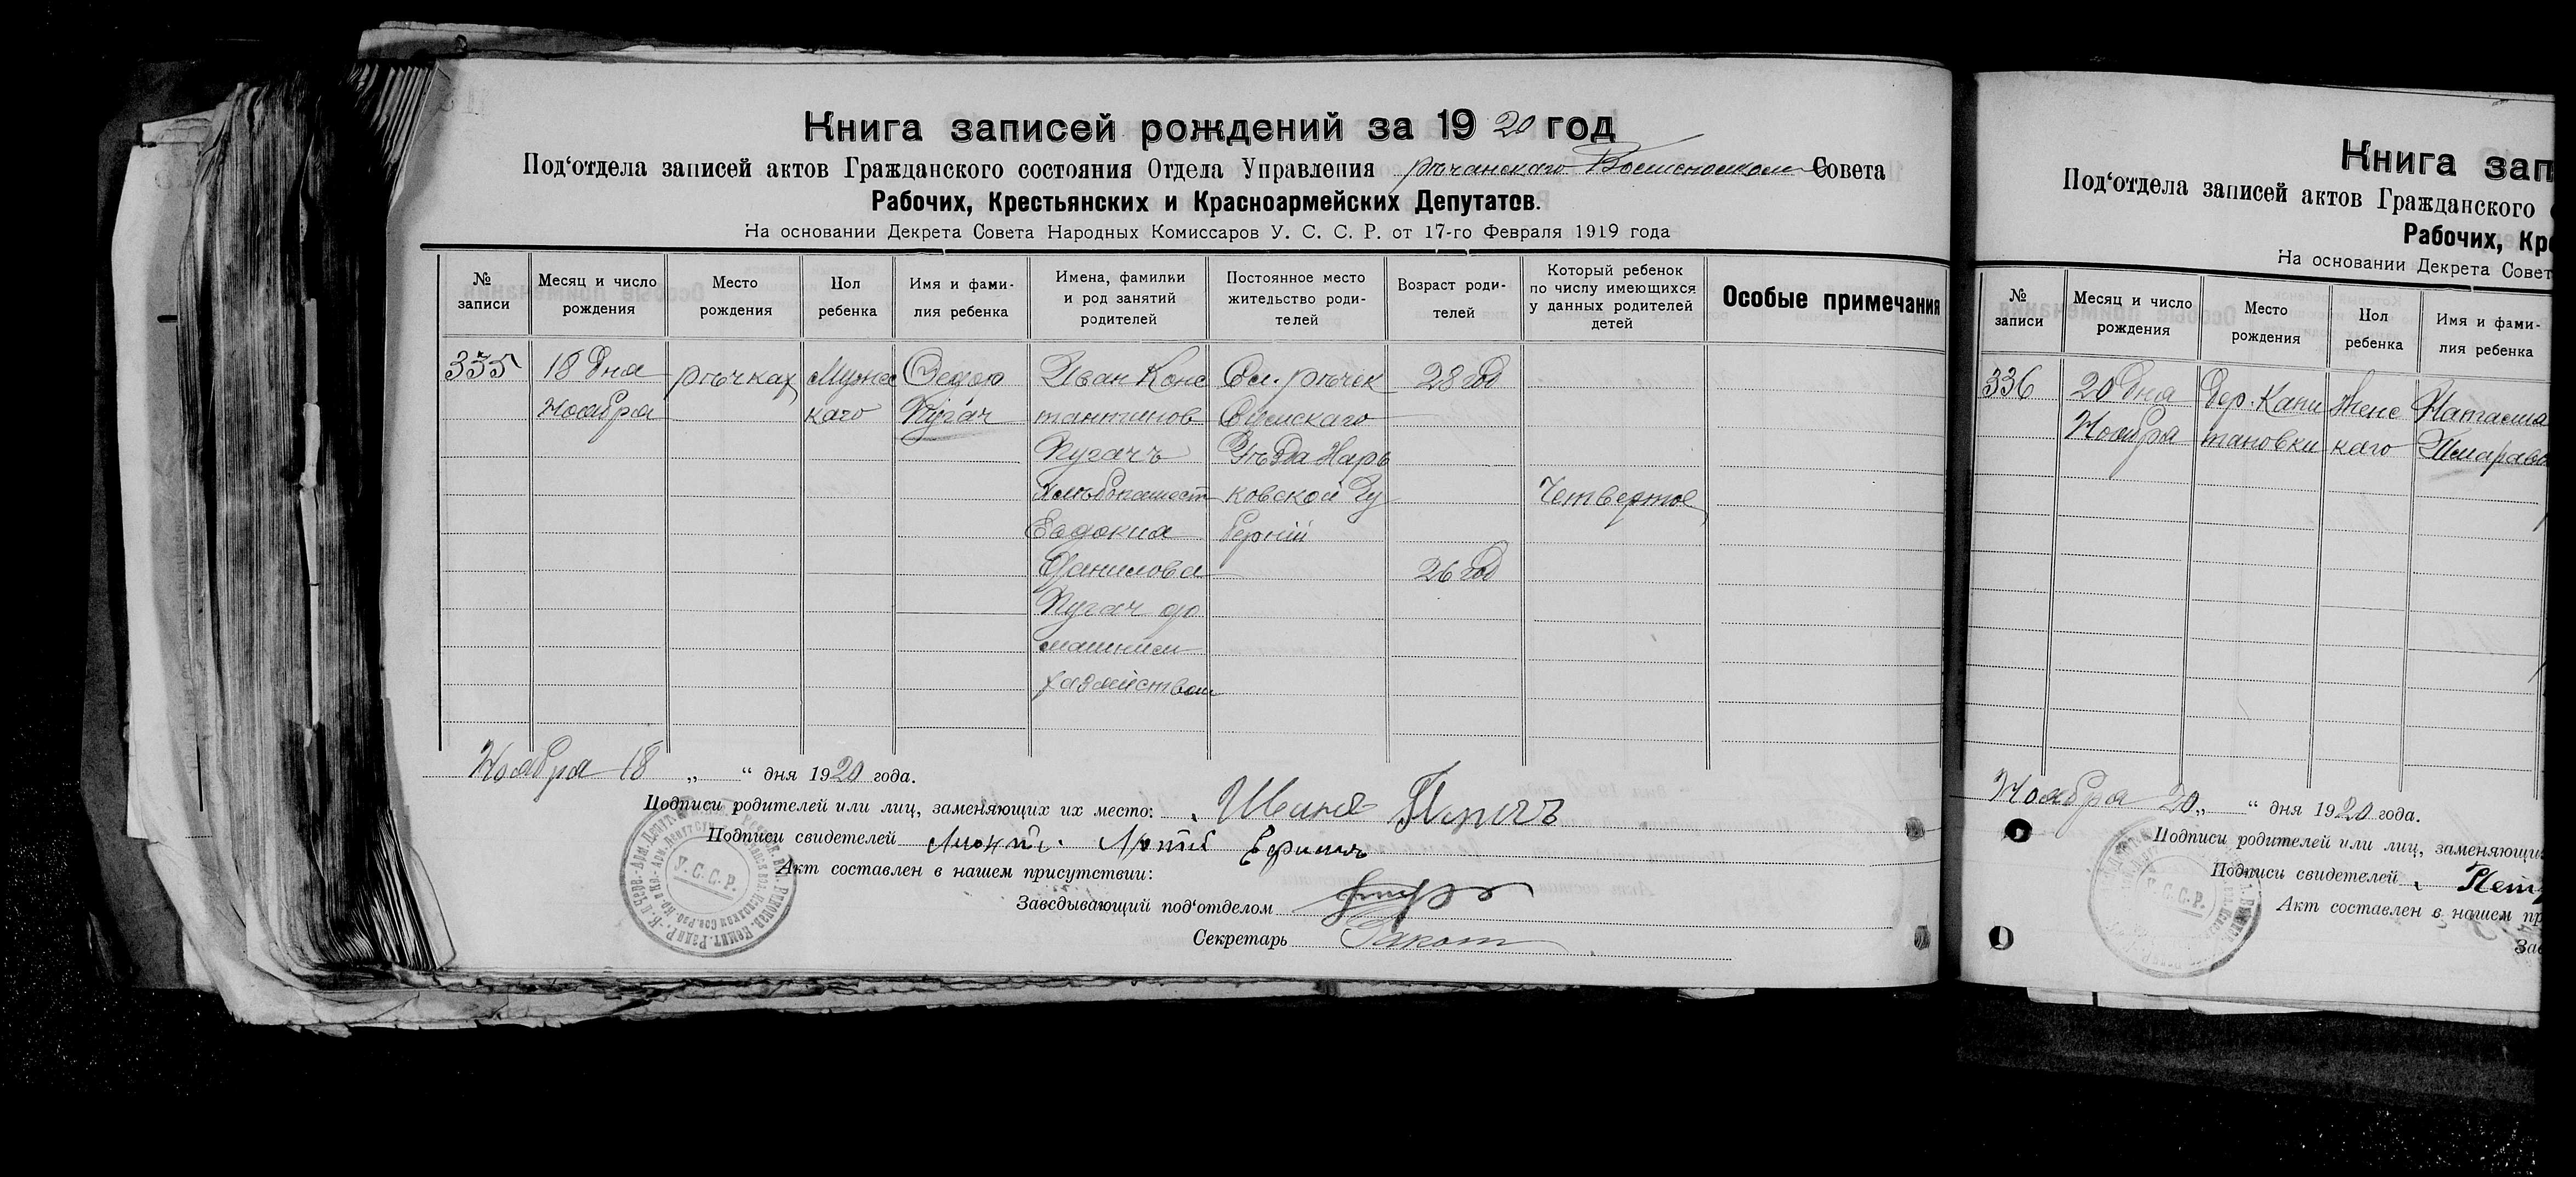 Книга записей рождений за 1920 год
Под‘отдела записей актов Гражданского состояния Отдела Управления рѣчанскаго Совета
Рабочих, Крестьянских и Красноармейских Депутатов.
На основании Декрета Совета Народных Комиссаров У. С. С. Р. от 17-го Февраля 1919 года
№ записи
Месяц и число рождения
Место рождения
Пол ребенка
Имя и фами-
лия ребенка
Имена, фамилии
и род занятий
родителей
Постоянное место
жительство роди-
телей
Возраст роди-
телей
Который ребенок
по числу имеющихся
у данных родителей
детей
Особые примечания
335
18 дня
Ноября
рѣчках
Мужес
каго
Федор
Пугач
Иван Конс
тантинов
Пугачъ
хлѣбопашест
Евдокия
Данилова
Пугач до
машним
хазяйством
Сл. рѣчек
Сумскаго
Уѣзда Харь
ковской Гу
берніи
28 год
26 год
Четвертое
Ноября 18 „ “ дня 1920 года.
Подписи родителей или лиц, заменяющих их место:
Подписи свидетелей
Акт составлен в нашем присутствии:
Заведывающий под‘отделом
Секретарь
У.С.С.Р.
Книга зап
Под‘отдела записей актов Гражданского
Рабочих, Кре
На основании Декрета Совет
№ записи
Месяц и число
рождения
Место
рождения
Пол
ребенка
Имя и фами-
лия ребенка
336
20 дня
Ноября
дер. Капи
тановки
Женс
каго
Наталия
Ноября 20 „ “ дня 1920 года.
Подписи родителей или лиц, заменяющи
Подписи свидетелей
Акт составлен в нашем пр
Зав
С.С.Р.